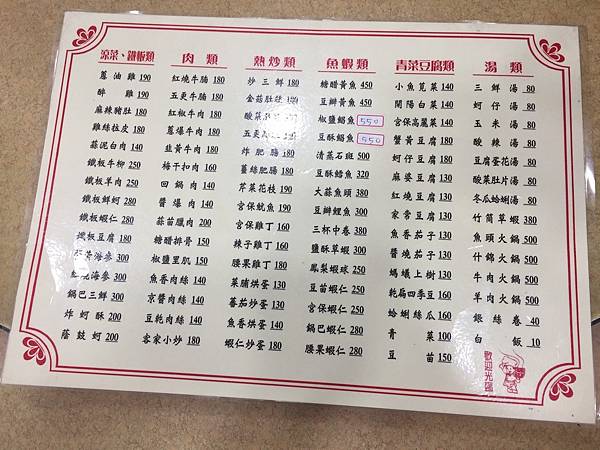 涼菜、鐵板類
蔥油雞 190
醉雞 190
麻辣豬肚 180
雞絲拉皮 180
蒜泥白肉 140
鐵板牛柳 250
鐵板羊肉 250
鐵板鮮蚵 280
鐵板蝦仁 280
鐵板豆腐 180
海參 300
海參 300
鍋巴三鮮 300
炸蚵酥 200
蔭鼓蚵 200
肉類
紅燒牛腩 180
五更牛腩 180
紅椒牛肉 180
蔥爆牛肉 180
韭黃牛肉 180
梅干扣肉 160
回鍋肉 140
醬爆肉 140
蒜苗臘肉 200
糖醋排骨 150
椒鹽里肌 150
魚香肉絲 140
京醬肉絲 140
豆乾肉絲 140
客家小炒 180
熱炒類
炒三鮮 180
金菇肚絲
酸菜
五更
炸肥腸 180
薑絲肥腸 180
芹菜花枝 190
宮保魷魚 190
宮保雞丁 180
辣子雞丁 160
腰果雞丁 180
菜脯烘蛋 130
蕃茄炒蛋 130
魚香烘蛋 140
蝦仁炒蛋 180
魚蝦類
糖醋黃魚 450
豆瓣黃魚 450
椒鹽鯧魚 550
豆酥鯧魚 550
清蒸石斑 500
豆酥鱈魚 320
大蒜魚頭 380
豆瓣鯉魚 300
三杯中卷 380
鹽酥草蝦 300
鳳梨蝦球 250
豆苗蝦仁 250
宮保蝦仁 250
鍋巴蝦仁 280
腰果蝦仁 280
青菜豆腐類
小魚莧菜 140
開陽白菜 140
宮保高麗菜 140
蟹黃豆腐 180
蚵仔豆腐 180
麻婆豆腐 130
紅燒豆腐 130
家常豆腐 130
魚香茄子 130
醬燒茄子 130
螞蟻上樹 130
乾扁四季豆 160
蛤蜊絲瓜 160
青菜 100
豆苗 150
湯類
三鮮湯 80
蚵仔湯 80
玉米湯 80
酸辣湯 80
豆腐蛋花湯 80
酸菜肚片湯 80
冬瓜蛤蜊湯 80
竹筒草蝦 380
魚頭火鍋 500
什錦火鍋 500
牛肉火鍋 500
羊肉火鍋 500
銀絲卷 40
白飯 10
歡迎光臨